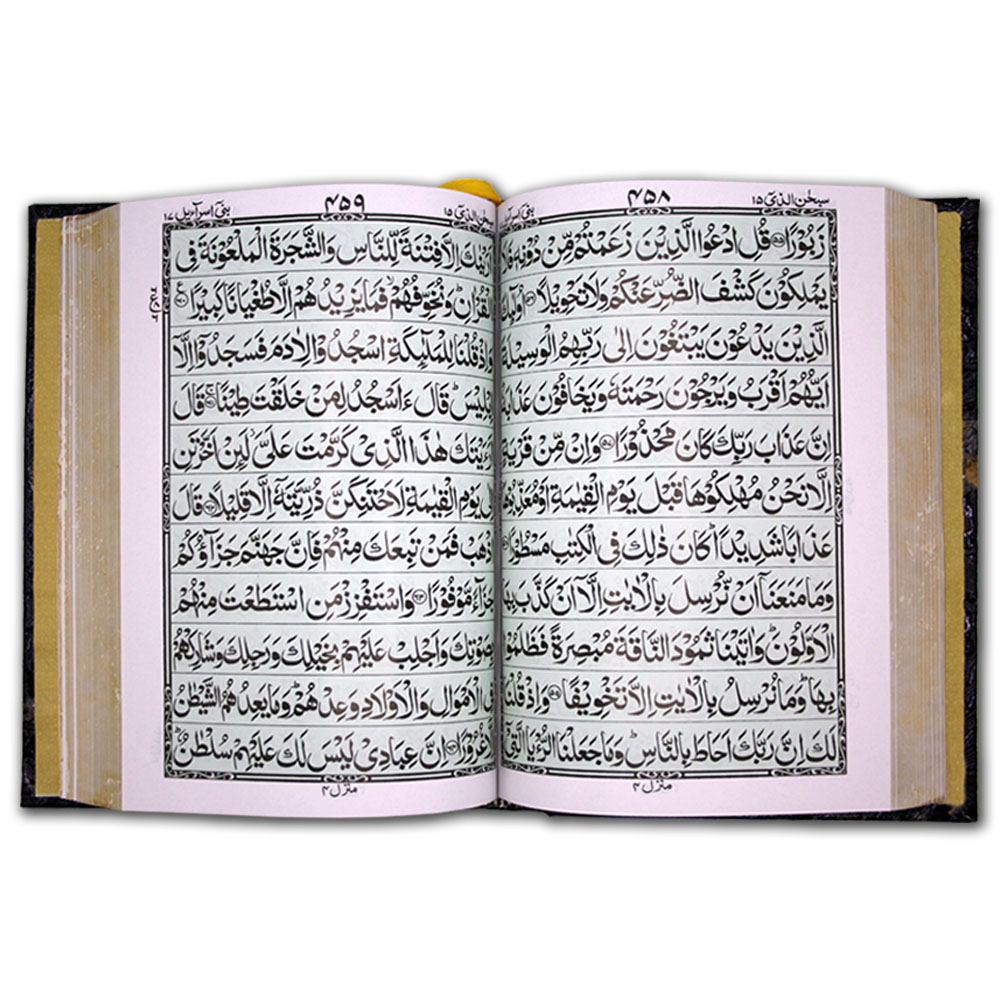 سبحٰن الذیٓ ۱۵
۴۵۸
بنیٓ اسرآ
زَبُوْرًا ﴿۵۵﴾ قُلِ ادْعُوا الَّذِيْنَ زَعَمْتُمْ مِّنْ دُوْنِهٖ فَلَا
يَمْلِكُوْنَ كَشْفَ الضُّرِّ عَنْكُمْ وَلَا تَحْوِيْلًا ﴿۵۶﴾ اُولٰٓئِكَ
الَّذِيْنَ يَدْعُوْنَ يَبْتَغُوْنَ اِلٰى رَبِّهِمُ الْوَسِيْلَ
اَيُّهُمْ اَقْرَبُ وَيَرْجُوْنَ رَحْمَتَهٗ وَيَخَافُوْنَ عَذَابَ
اِنَّ عَذَابَ رَبِّكَ كَانَ مَحْذُوْرًا ﴿۵۷﴾ وَاِنْ مِّنْ قَرْيَةٍ
اِلَّا نَحْنُ مُهْلِكُوْهَا قَبْلَ يَوْمِ الْقِيٰمَةِ اَوْ مُعَذِّبُوْ
عَذَابًا شَدِيْدًا ؕ كَانَ ذٰلِكَ فِى الْكِتٰبِ مَسْطُوْرًا
وَمَا مَنَعَنَاۤ اَنْ نُّرْسِلَ بِالْاٰيٰتِ اِلَّاۤ اَنْ كَذَّبَ بِهَا
الْاَوَّلُوْنَ ؕ وَاٰتَيْنَا ثَمُوْدَ النَّاقَةَ مُبْصِرَةً فَظَلَمُوْا
بِهَا ؕ وَمَا نُرْسِلُ بِالْاٰيٰتِ اِلَّا تَخْوِيْفًا ﴿۵۹﴾ وَاِذْ قُلْنَا
لَكَ اِنَّ رَبَّكَ اَحَاطَ بِالنَّاسِ ؕ وَمَا جَعَلْنَا الرُّءْيَا الَّتِىْۤ
منزل ۴
الذیٓ ۱۵
۴۵۹
بنیٓ اسرآءیل ۱۷
اَرَيْنٰكَ اِلَّا فِتْنَةً لِّلنَّاسِ وَالشَّجَرَةَ الْمَلْعُوْنَةَ فِى
الْقُرْاٰنِ ؕ وَنُخَوِّفُهُمْ ۙ فَمَا يَزِيْدُهُمْ اِلَّا طُغْيَانًا كَبِيْرًا ﴿۶۰﴾
وَاِذْ قُلْنَا لِلْمَلٰٓئِكَةِ اسْجُدُوْا لِاٰدَمَ فَسَجَدُوْۤا اِلَّاۤ
اِبْلِيْسَ ؕ قَالَ ءَاَسْجُدُ لِمَنْ خَلَقْتَ طِيْنًا ﴿۶۱﴾ قَالَ
اَرَءَيْتَكَ هٰذَا الَّذِىْ كَرَّمْتَ عَلَىَّ ؗ لَئِنْ اَخَّرْتَنِ
اِلٰى يَوْمِ الْقِيٰمَةِ لَاَحْتَنِكَنَّ ذُرِّيَّتَهٗۤ اِلَّا قَلِيْلًا ﴿۶۲﴾ قَالَ
اذْهَبْ فَمَنْ تَبِعَكَ مِنْهُمْ فَاِنَّ جَهَنَّمَ جَزَآؤُكُمْ
جَزَآءً مَّوْفُوْرًا ﴿۶۳﴾ وَاسْتَفْزِزْ مَنِ اسْتَطَعْتَ مِنْهُمْ
بِصَوْتِكَ وَاَجْلِبْ عَلَيْهِمْ بِخَيْلِكَ وَرَجِلِكَ وَشَارِكْهُمْ
فِى الْاَمْوَالِ وَالْاَوْلَادِ وَعِدْهُمْ ؕ وَمَا يَعِدُهُمُ الشَّيْطٰنُ
اِلَّا غُرُوْرًا ﴿۶۴﴾ اِنَّ عِبَادِىْ لَيْسَ لَكَ عَلَيْهِمْ سُلْطٰنٌ ؕ
منزل ۴